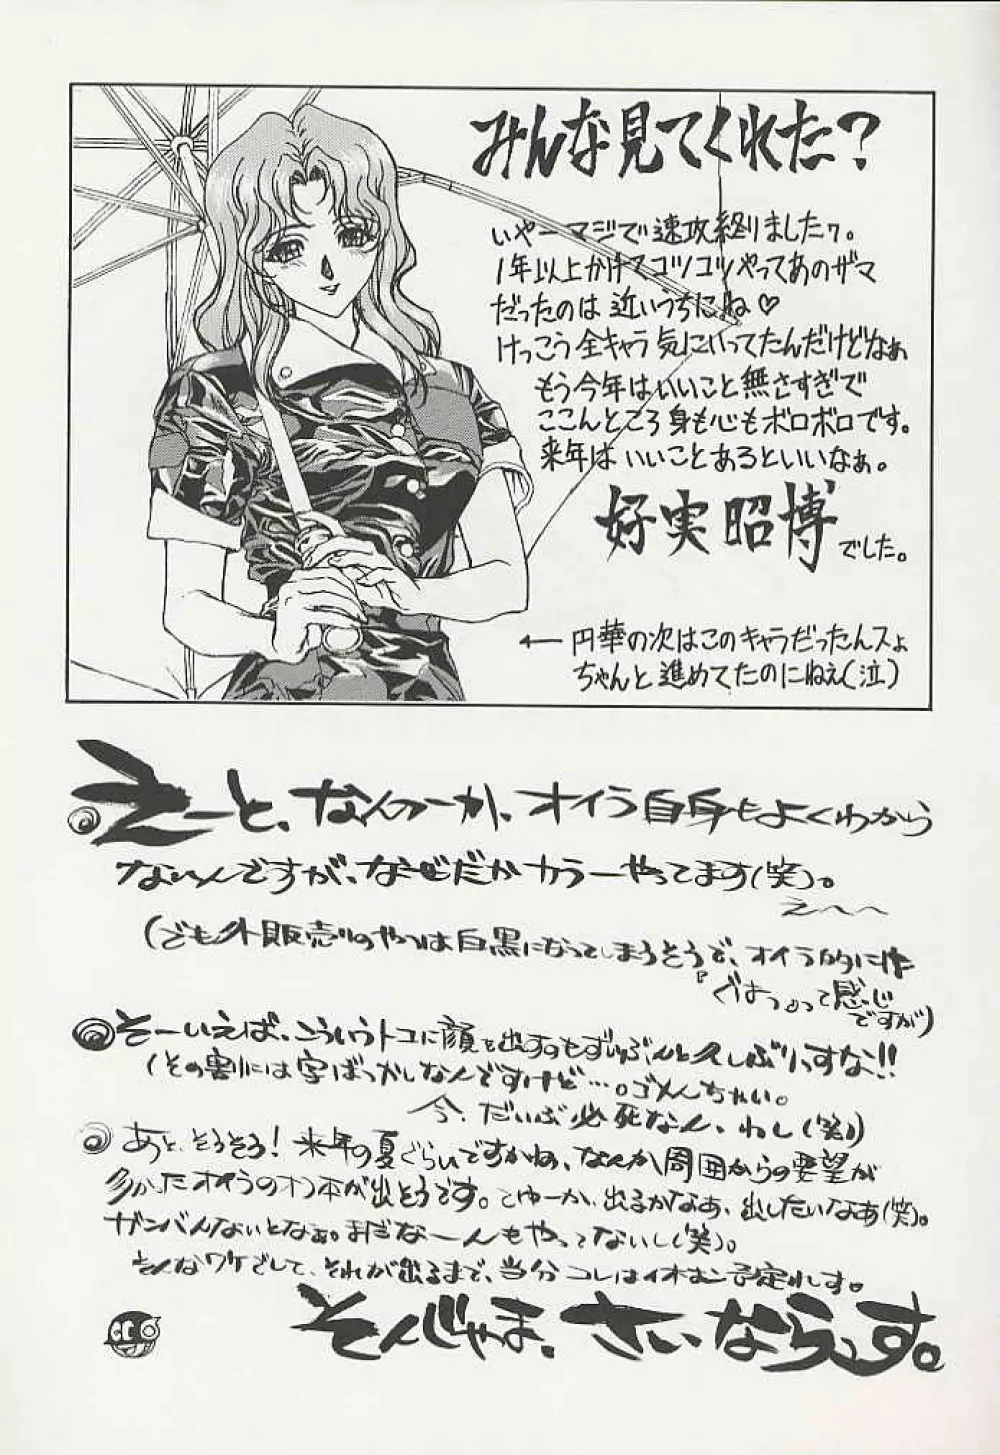 みんな見てくれた?
いやーマジで速攻終りましたァ。
1年以上かけてコツコツやってあのザマ
だったのは近いうちにね♡
けっこう全キャラ気にいってたんだけどなぁ
もう今年はいいこと無さすぎで
ここんところ身も心もボロボロです。
来年はいいことあるといいなぁ。
好実昭博でした。
← 円華の次はこのキャラだったんスよ
ちゃんと進めてたのにねぇ(泣)
えーと、なんつーか、オイラ自身もよくわから
ないんですが、なぜだかカラーやってます(笑)。
えへへ
(でも外販売りのやつは白黒になってしまうそうで、オイラ的には
『ぐはっ』って感じ
ですが)
そーいえば、こういうトコに顔を出すのもずいぶんと久しぶりっすな!!
(その割には字ばっかしなんですけど…。ゴメんちゃい。
今、だいぶ必死なん、わし(笑))
あと、そろそろ!来年の夏ぐらいですかね、なんか周囲からの要望が
多かったオイラのオフ本が出そうです。とゆーか、出るかなあ、出したいなあ(笑)。
ガンバんないとなぁ。まだなーんもやってないし(笑)。
そんなワケでして、それが出るまで、当分コレは
そんじゃま、さいならっす。